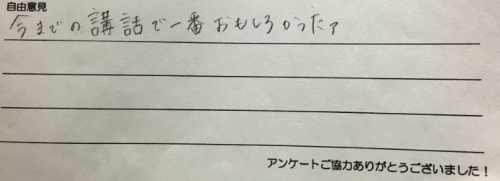 自由意見
今までの講話で一番おもしろかったァ
アンケートご協力ありがとうございました！